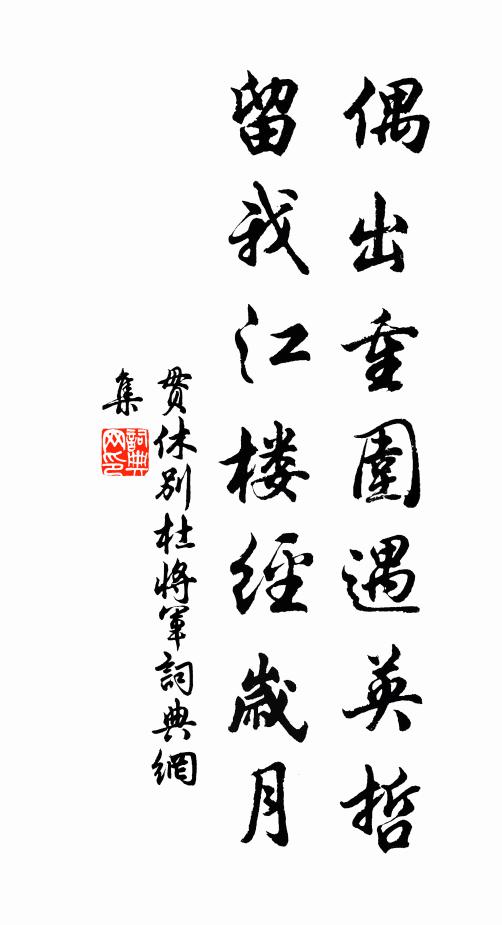 偶出重圍遇英哲
留我江楼經歲月
貫休别杜將軍詞典網
集
詞典
网印